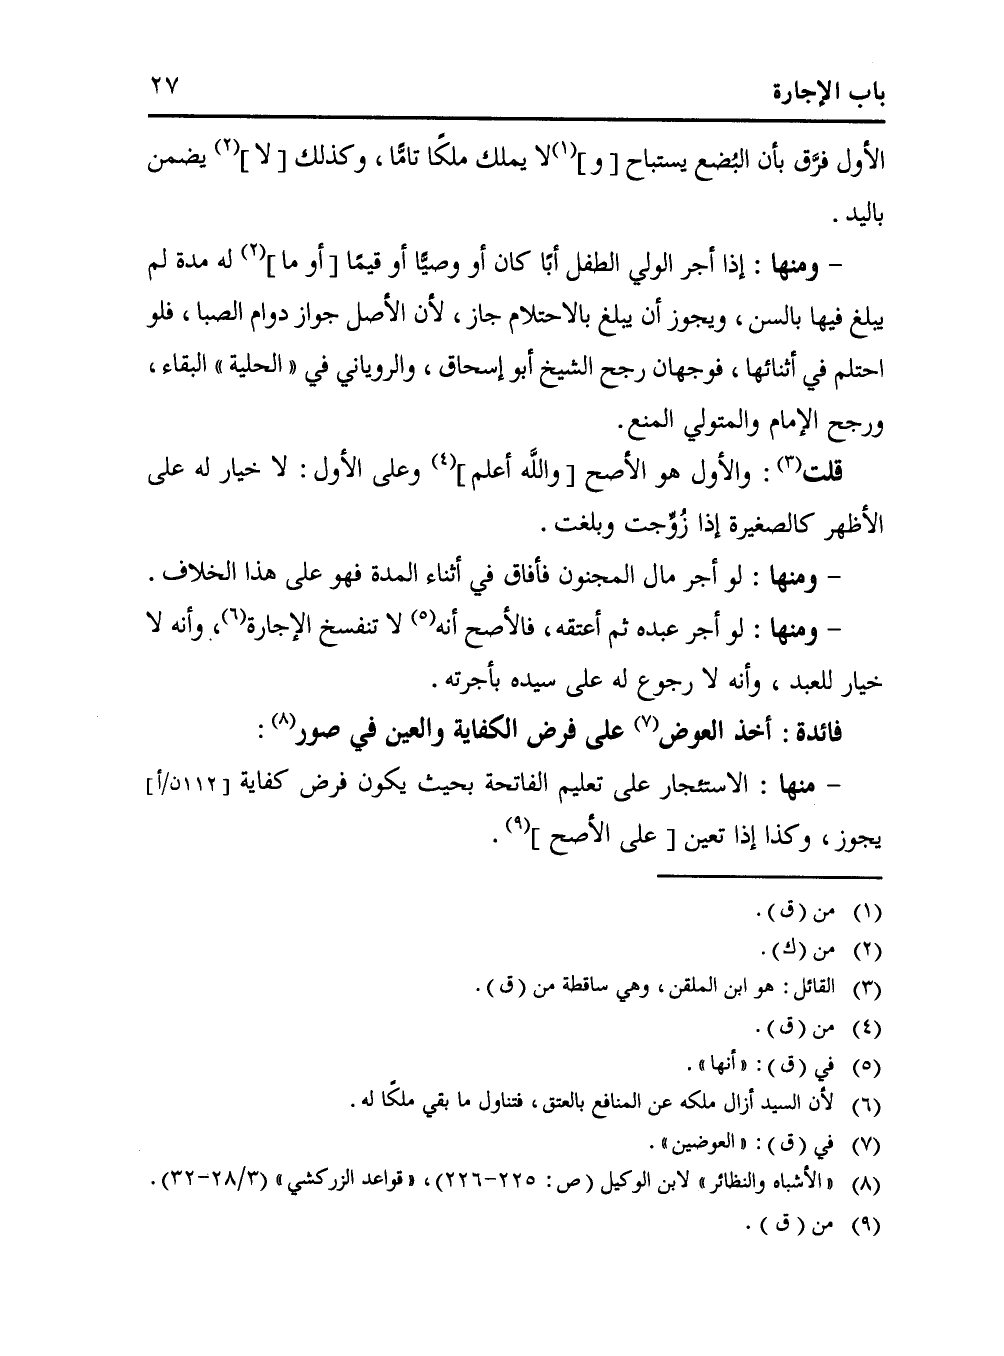 باب الإجارة ٢٧
الأول فرَّق بأن البُضع يستباح [ و ](١)لا يملك ملكًا تامًّا ، وكذلك [ لا ](٢) يضمن
باليد .
- ومنها : إذا أجر الولي الطفل أبًا كان أو وصيًّا أو قيمًا [ أو ما ](٢) له مدة لم
يبلغ فيها بالسن ، ويجوز أن يبلغ بالاحتلام جاز ، لأن الأصل جواز دوام الصبا ، فلو
احتلم في أثنائها ، فوجهان رجح الشيخ أبو إسحاق ، والروياني في « الحلية » البقاء ،
ورجح الإمام والمتولي المنع.
قلت(٣) : والأول هو الأصح [ والله أعلم ](٤) وعلى الأول : لا خيار له على
الأظهر كالصغيرة إذا زُوِّجت وبلغت .
- ومنها : لو أجر مال المجنون فأفاق في أثناء المدة فهو على هذا الخلاف .
- ومنها : لو أجر عبده ثم أعتقه ، فالأصح أنه(٥) لا تنفسخ الإجارة(٦)، وأنه لا
خيار للعبد ، وأنه لا رجوع له على سيده بأجرته .
فائدة : أخذ العوض(٧) على فرض الكفاية والعين في صور(٨) :
- منها : الاستئجار على تعليم الفاتحة بحيث يكون فرض كفاية [ ١١٢ن/أ ]
يجوز ، وكذا إذا تعين [ على الأصح ](٩) .
(١) من ( ق ) .
(٢) من ( ك ) .
(٣) القائل : هو ابن الملقن ، وهي ساقطة من ( ق ) .
(٤) من ( ق ) .
(٥) في ( ق ) : « أنها » .
(٦) لأن السيد أزال ملكه عن المنافع بالعتق ، فتناول ما بقي ملكًا له .
(٧) في ( ق ) : « العوضين » .
(٨) « الأشباه والنظائر » لابن الوكيل ( ص : ٢٢٥-٢٢٦) ، « قواعد الزركشي » (٢٨/٣-٣٢) .
(٩) من ( ق ) .